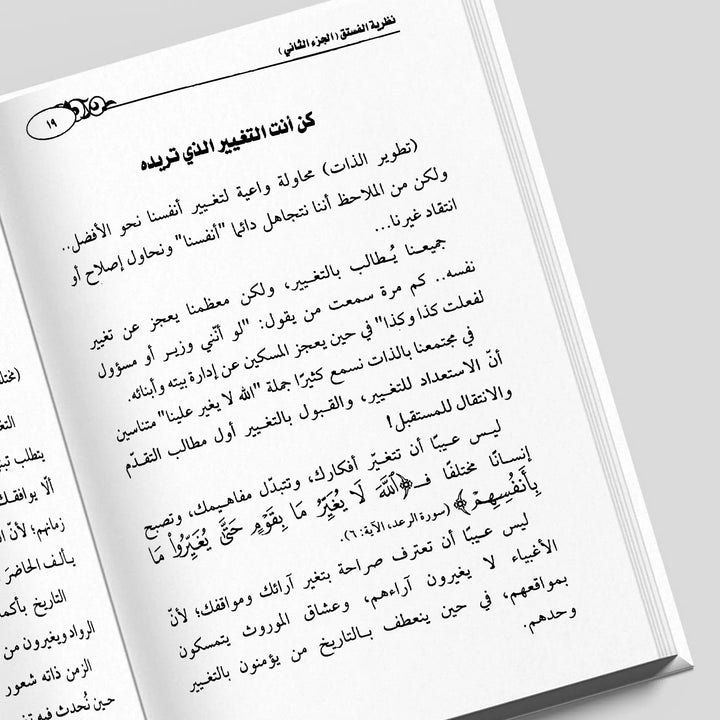 نظرية الفستق (الجزء الثاني)
١٩
كن أنت التغيير الذي تريده
(تطوير الذات) محاولة واعية لتغيير أنفسنا نحو الأفضل..
ولكن من الملاحظ أننا نتجاهل دائما "أنفسنا" ونحاول إصلاح أو
انتقاد غيرنا...
جميعنا يُطالب بالتغيير، ولكن معظمنا يعجز عن تغيير
نفسه.. كم مرة سمعت من يقول: "لو أنّني وزير أو مسؤول
لفعلت كذا وكذا" في حين يعجز المسكين عن إدارة بيته وأبنائه.
في مجتمعنا بالذات نسمع كثيرًا جملة "الله لا يغير علينا" متناسين
أنّ الاستعداد للتغيير، والقبول بالتغيير أول مطالب التقدّم
والانتقال للمستقبل!
ليس عيبًا أن تتغيّر أفكارك، وتتبدّل مفاهيمك، وتصبح
إنسانًا مختلفًا فـ ﴿ٱللَّهَ لَا يُغَيِّرُ مَا بِقَوْمٍ حَتَّىٰ يُغَيِّرُوا۟ مَا
بِأَنفُسِهِمْ﴾ (سورة الرعد، الآية: ٦).
ليس عيبًا أن تعترف صراحة بتغير آرائك ومواقفك؛ لأنّ
الأغبياء لا يغيرون آراءهم، وعشاق الموروث يتمسكون
بمواقعهم، في حين ينعطف بالتاريخ من يؤمنون بالتغيير
وحدهم.
يتطلب
ألّا يوافقك
زمانهم؛ لأنّ
بألف الحاضر
التاريخ بأكم
الرواد ويغيرون من
الزمن ذاته شعور
حين نُحدث فيه